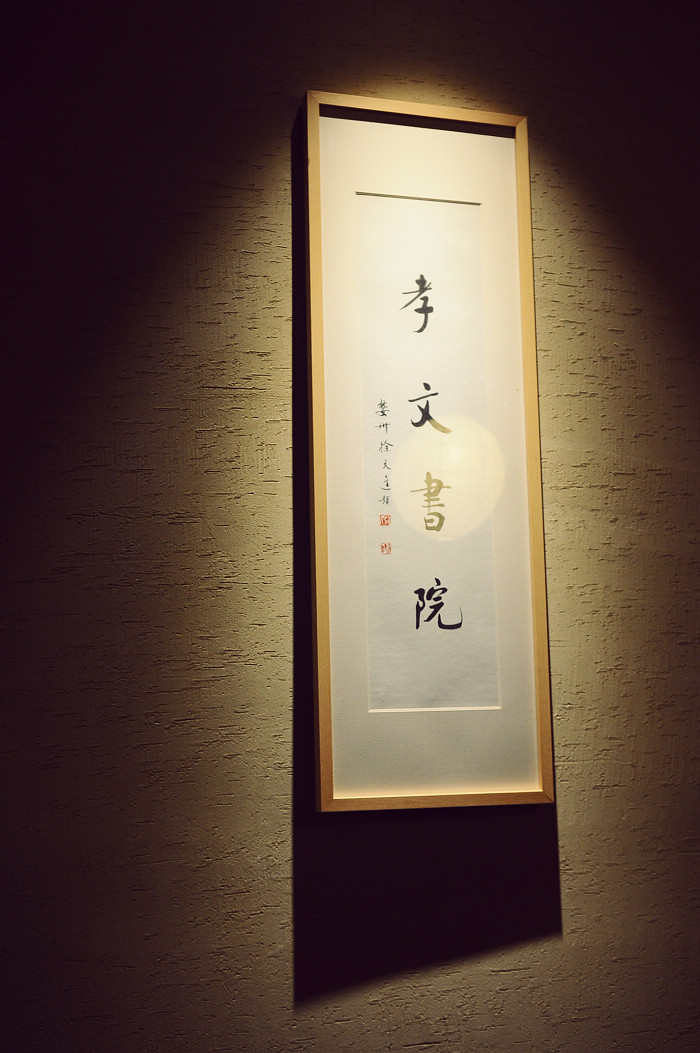 孝文書院
婺州徐文達題